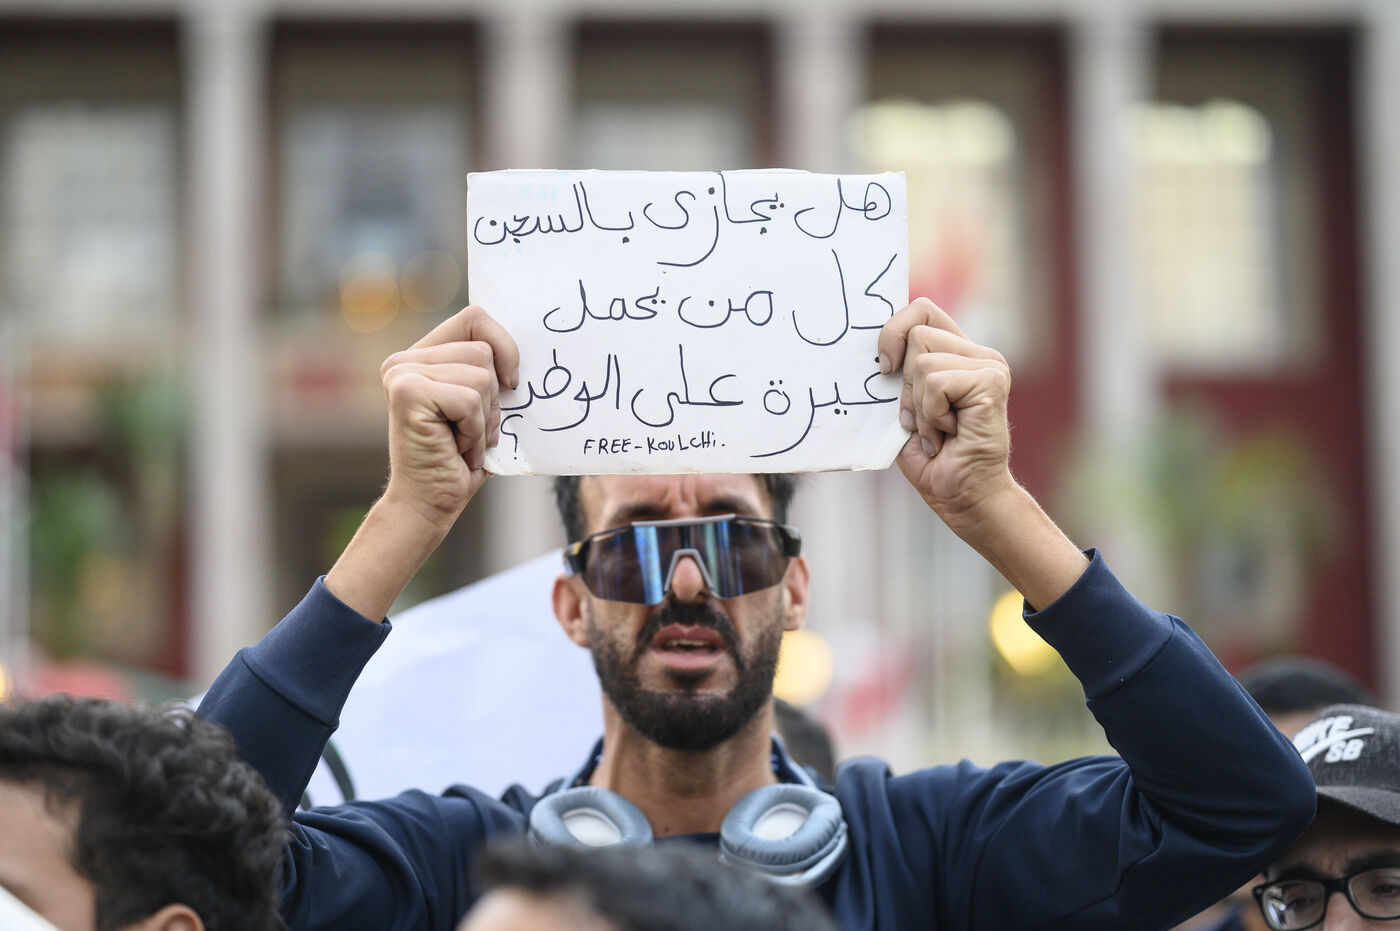 هل يجازى بالسجن
كل من يحمل
غيرة على الوطن
؟
FREE-KOULCHi.
NIKE
SB